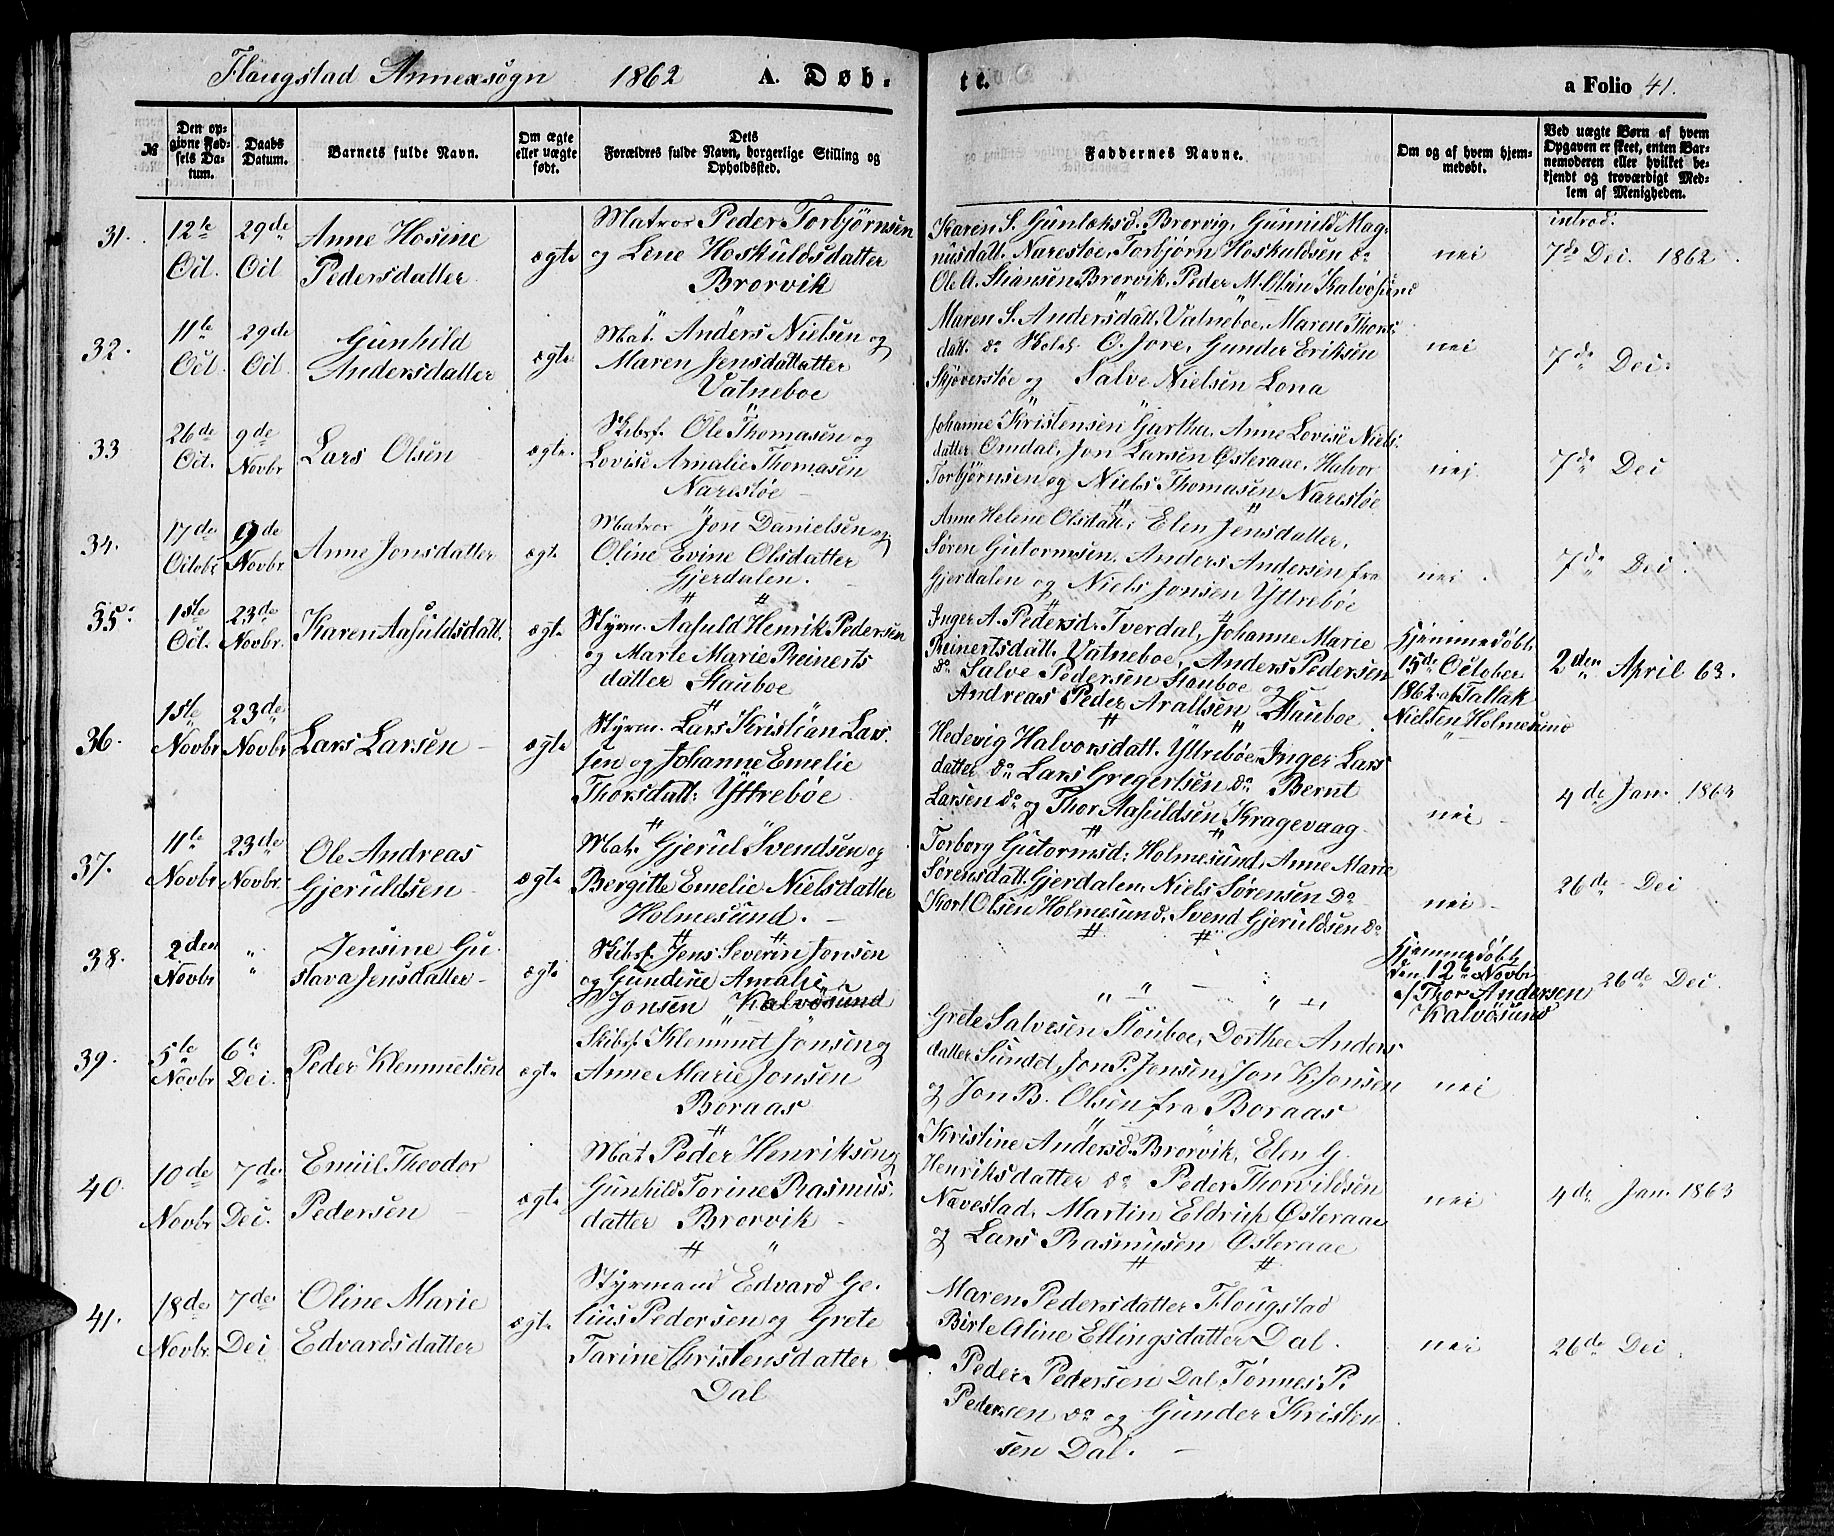 Flaugstad Annexsogn 1862 A. Døb- te. a Folio 41.
№
Den op-
givne Fød-
sels Da-
tum.
Daabs
Datum.
Barnets fulde Navn.
Om ægte
eller uægte
født.
Dets
Forældres fulde Navn, borgerlige Stilling og
Opholdssted.
Faddernes Navne.
Om og af hvem hjem-
medøbt.
Ved uægte Børn af hvem
Opgaven er skeet, enten Bar-
nemoderen eller hvilket be-
kjendt og troværdigt Med-
lem af Menigheden.
31.
12te
Oct.
29de
Oct
Anne Hosine
Pedersdatter
ægte
Matros Peder Torbjørnsen
og Lene Hoskuldsdatter
Brorvik
Karen S. Gunlæksd. Brorvig, Gunnild Mag-
nusdatt. Narestøe, Torbjørn Hoskuldsen do
Ole A. Stiansen Brorvik, Peder M. Olsen Kalvøsund
nei
introd:
7de Dec. 1862.
32.
11te
Oct.
29de
Oct.
Gunhild
Andersdatter
ægte
Mat. Anders Nielsen og
Maren Jensdattatter
Vatneboe
Maren S. Andersdatt. Vatneboe, Maren Thors-
datt. do O. Jore, Gunder Eriksen
Skjøverstøe og Salve Nielsen Lona
nei
7de Dec:
33
26de
Oct.
9de
Novbr
Lars Olsen
ægte.
Skibsf. Ole Thomasen og
Lovise Amalie Thomasen
Narestøe
Johanne Kristensen Gartha, Anne Lovise Niels-
datter Omdal, Jon Larsen Østeraae, Halvor
Torbjørnsen og Niels Thomasen Narestøe
nei
7de Dec
34.
17de
Octobr
9de
Novbr
Anne Jonsdatter
ægte
Matros Jon Danielsen og
Oline Evine Olsdatter
Gjerdalen.
Anne Helene Olsdatt, Elen Jensdatter,
Søren Gutormsen, Anders Andersen fra
Gjerdalen og Niels Jonsen Yttrebøe
nei.
7de Dec.
35.
1ste
Oct.
23de
Novbr.
Karen Aasuldsdatt.
ægte
Styrm. Aasuld Henrik Pedersen
og Marte Marie Reinerts
datter Stauboe
Inger A. Pedersd. Tverdal, Johanne Marie
Reinertsdatt. Vatneboe, Anders Pedersen
do Salve Pedersen Stauboe og
Andreas Peder Araltsen Stauboe
Hjemmedøbt
15de October
1862 af Tallak
Nielsen Holmesund
2den April 63.
36.
1ste
Novbr
23de
Novbr
Lars Larsen
ægte
Styrm. Lars Kristian Lars-
sen og Johanne Emelie
Thorsdatt: Yttrebøe
Hedevig Halvorsdatt. Yttrebøe, Inger Lars
datter do Lars Gregertsen do Bernt
Larsen do og Thor Aasuldsen Kragevaag
nei
4de Jan. 1863
37.
11te
Novbr
23de
Novbr.
Ole Andreas
Gjeruldsen
ægte
Mat. Gjerul Svendsen og
Bergitte Emelie Nielsdatter
Holmesund.
Torborg Gutormsd: Holmesund, Anne Marie
Sørensdatt. Gjerdalen, Niels Sørensen do
Karl Olsen Holmesund, Svend Gjeruldsen do
nei
26de Dec
38.
2den
Novbr
"
"
Jensine Gu-
stava Jensdatter
ægte
Skibsf. Jens Severin Jonsen
og Gundine Amalie
Jonsen Kalvøsund
" " " "
Hjemmedøbt
den 12te Novbr
af Thor Andersen
Kalvøsund
26de Dec.
39.
5te
Novbr
6te
Dec.
Peder Klemmetsen
ægte
Skibsf. Klemmet Jonsen og
Anne Marie Jonsen
Boraas
Grete Salvesen Stauboe, Dorthee Anders
datter Sundet, Jon P. Jonsen, Jon K. Jonsen
og Jon B. Olsen fra Boraas
nei
40.
10de
Novbr
7de
Dec.
Emiil Theodor
Pedersen
ægte
Mat. Peder Henriksen og
Gunhild Torine Rasmus-
datter Brorvik
Kristine Andersd. Brorvik, Elen G.
Henriksdatter do Peder Thorvildsen
Navestad, Martin Eldrup Østeraae
og Lars Rasmusen Østeraae
nei
4de Jan. 1863
41.
18de
Novbr.
7de
Dec
Oline Marie
Edvardsdatter
ægte
Styrmand Edvard Ge-
lius Pedersen og Grete
Tarine Christensdatter
Dal
Maren Pedersdatter Flougstad
Birte Aline Ellingsdatter Dal.
Peder Pedersen Dal, Tønnes P.
Pedersen do og Gunder Kristen
sen Dal.
nei
26de Dec.